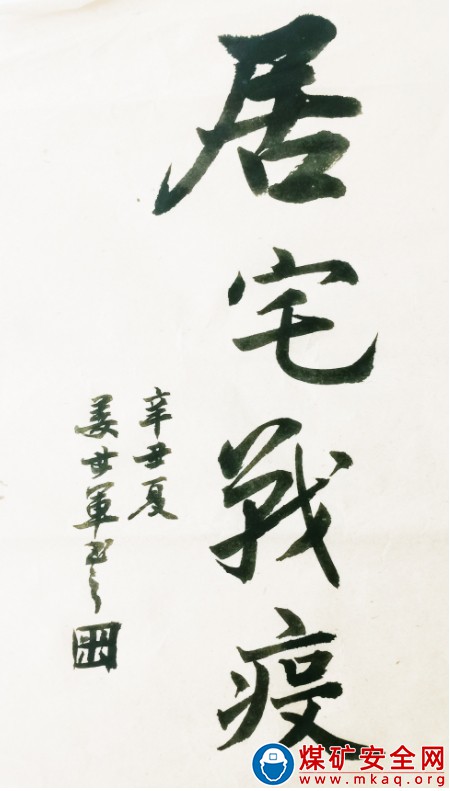 居宅戰疫
辛丑夏
姜世軍书之
煤矿安全网
www.mkaq.org